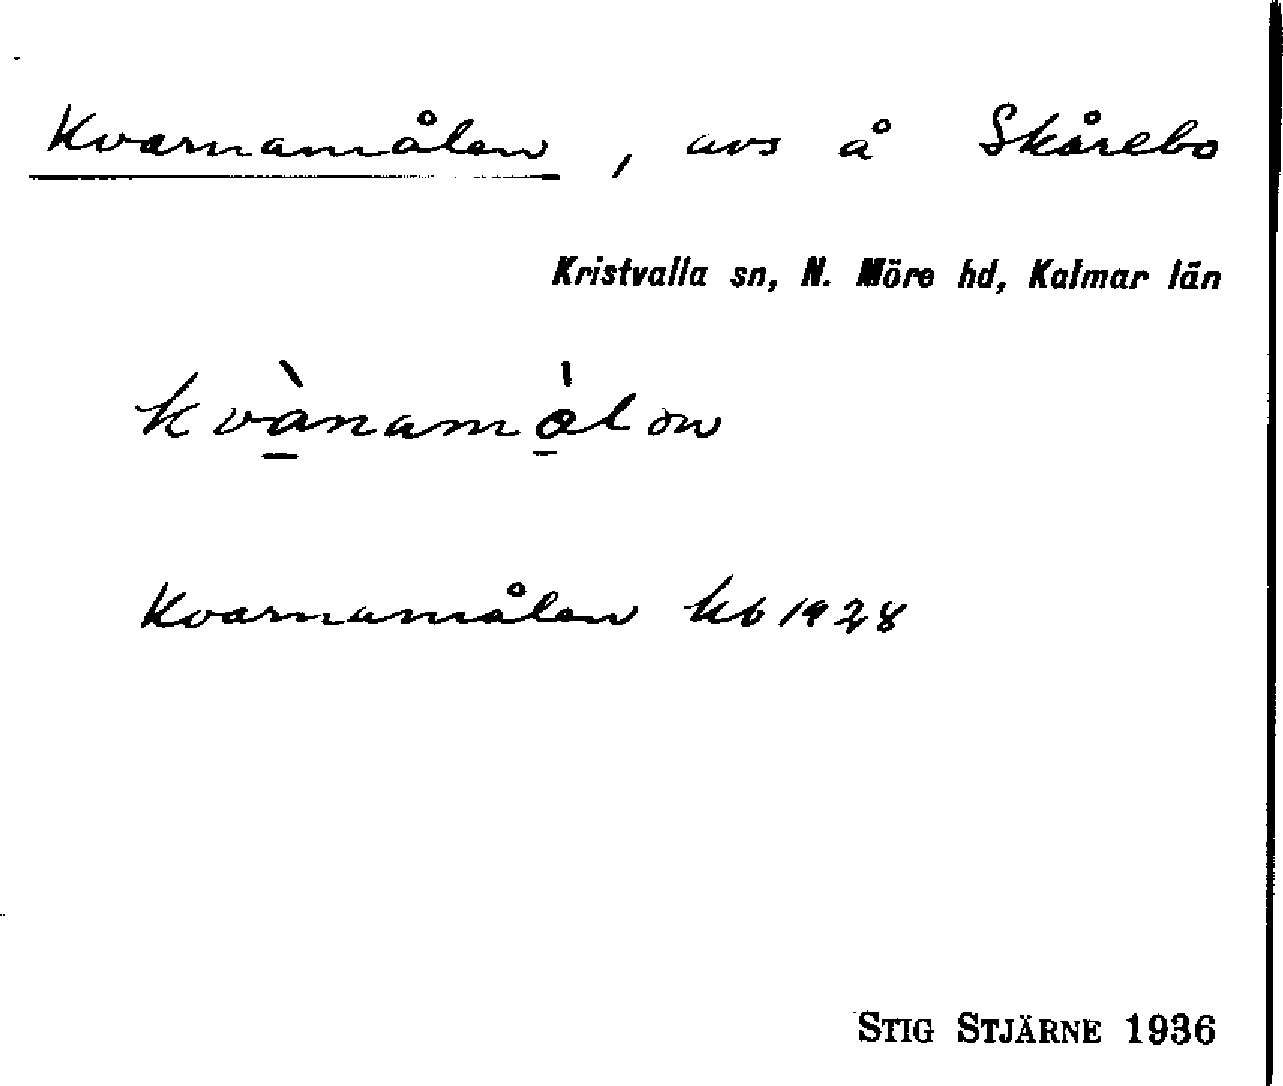 Kvarnamålen, avs å Skårebo
Kristvalla sn, N. Möre hd, Kalmar län
kvànamòlən
Kvarnamålen kb 1928
STIG STJÄRNE 1936